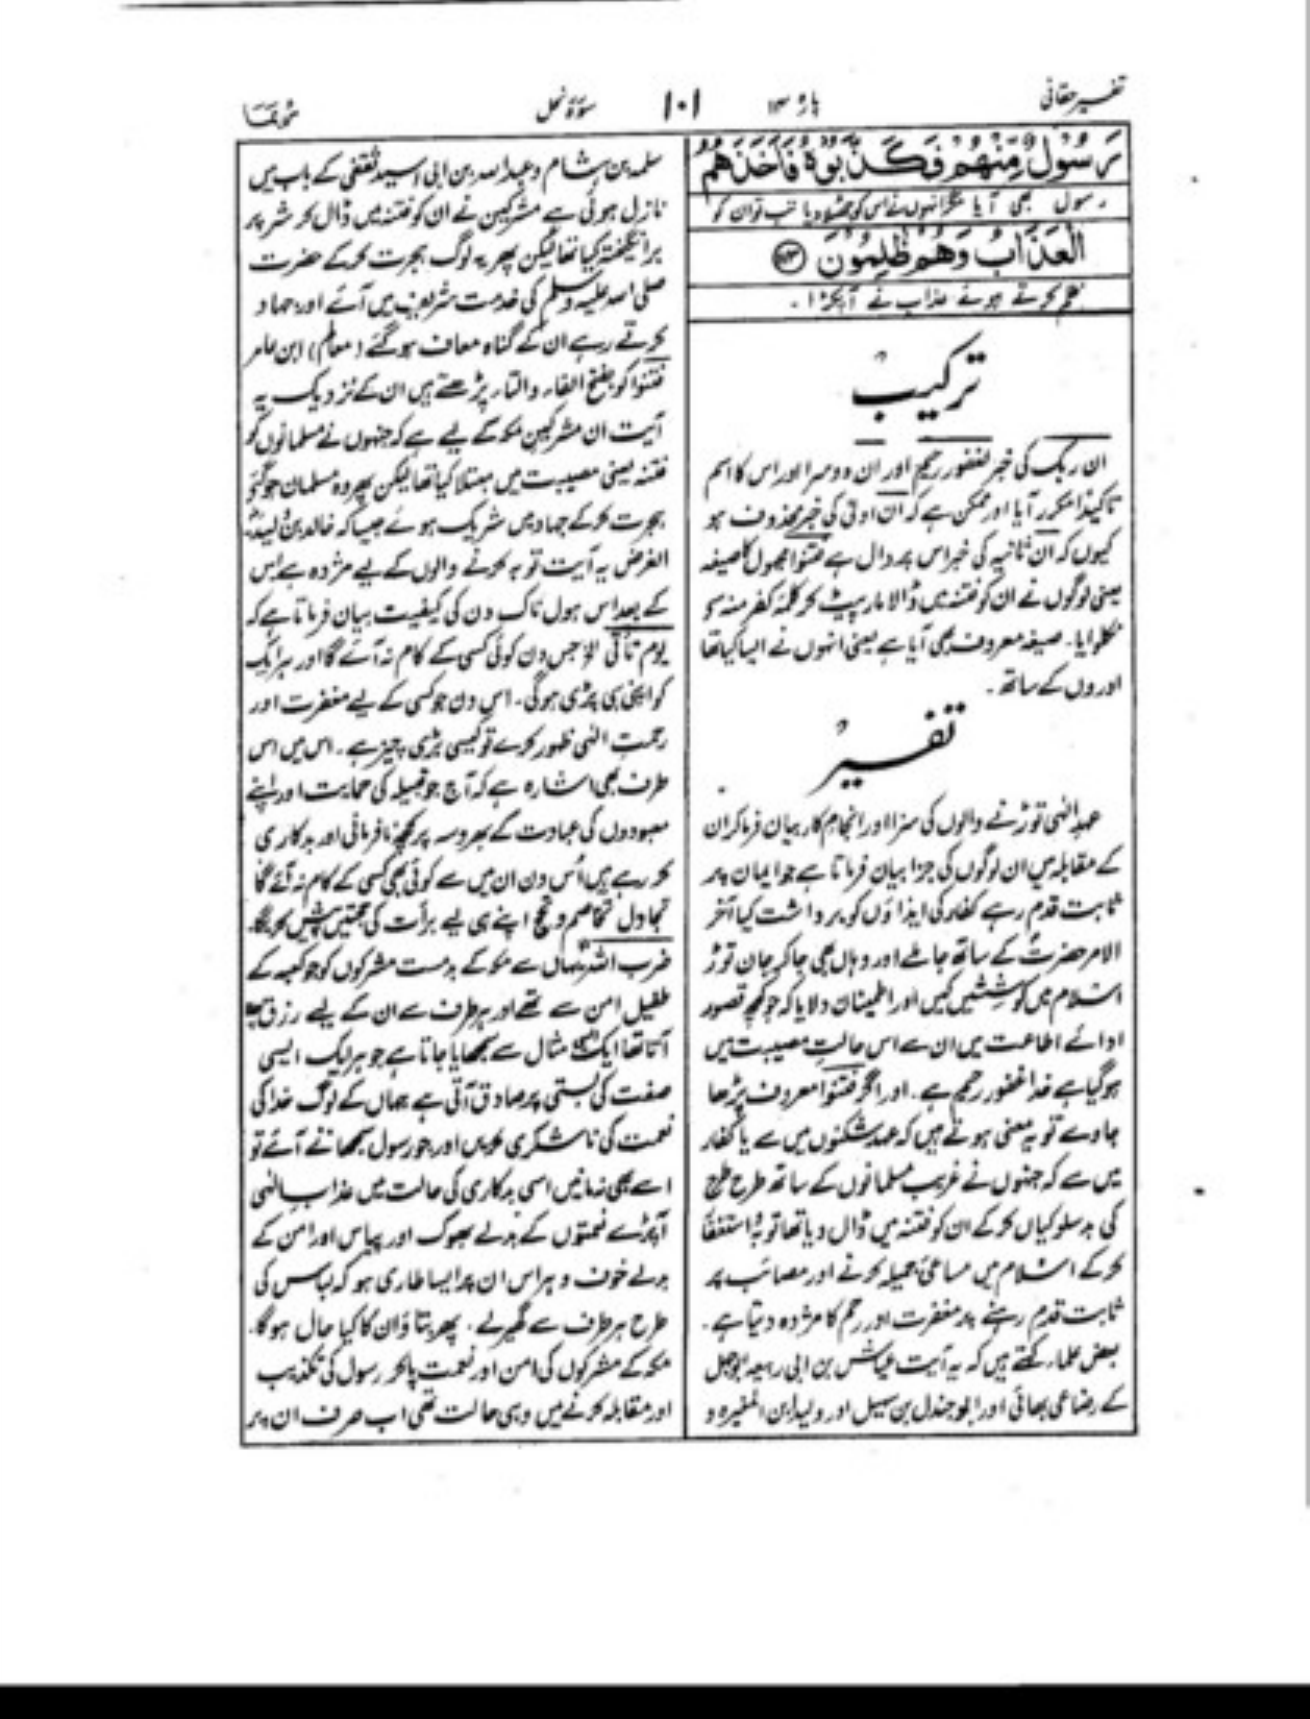 تفسیر حقانی
پارہ ۱۴
۱۰۱
سورۃ نحل
رَسُوْلٌ مِّنْهُمْ فَكَذَّبُوْهُ فَاَخَذَهُمُ
رسول بھی آیا مگر انہوں نے اس کو جھٹلا دیا تب تو ان کو
الْعَذَابُ وَهُمْ ظٰلِمُوْنَ ﴿۱۱۳﴾
ظلم کرتے ہوئے عذاب نے آ پکڑا۔
ترکیب
ان ربک کی خبر لغفور رحیم اور ان دوسرا اور اس کا اسم
تاکیداً مکرر آیا اور ممکن ہے کہ ان اولی کی خبر محذوف ہو
کیوں کہ ان ثانیہ کی خبر اس پر دال ہے فتنوا مجہول کا صیغہ
یعنی لوگوں نے ان کو فتنہ میں ڈالا مار پیٹ کر کلمۂ کفر منہ سے
نکلوایا۔ صیغہ معروف بھی آیا ہے یعنی انہوں نے ایسا کیا تھا
اوروں کے ساتھ۔
تفسیر
عہد الٰہی توڑنے والوں کی سزا اور انجام کار بیان فرما کر ان
کے مقابلہ میں ان لوگوں کی جزا بیان فرماتا ہے جو ایمان پر
ثابت قدم رہے کفار کی ایذاؤں کو برداشت کیا آخر
الامر حضرتؐ کے ساتھ جا ملے اور وہاں بھی جا کر جان توڑ
اسلام میں کوششیں کیں اور اطمینان دلایا کہ جو کچھ قصور
ادائے اطاعت میں ان سے اس حالتِ مصیبت میں
ہو گیا ہے خدا غفور رحیم ہے۔ اور اگر فتنوا معروف پڑھا
جاوے تو یہ معنی ہوتے ہیں کہ عہد شکنوں میں سے یا کفار
میں سے کہ جنہوں نے غریب مسلمانوں کے ساتھ طرح طرح
کی بدسلوکیاں کر کے ان کو فتنہ میں ڈال دیا تھا توبہ و استغفار
کر کے اسلام میں مساعیٔ جمیلہ کرنے اور مصائب پر
ثابت قدم رہنے پر مغفرت اور رحم کا مژدہ دیتا ہے۔
بعض علماء کہتے ہیں کہ یہ آیت عیاش بن ابی ربیعہ ابوجہل
کے رضاعی بھائی اور ابو جندل بن سہیل اور ولید ابن المغیرہ و
سلمہ بن ہشام و عبداللہ بن ابی اسید ثقفی کے باب میں
نازل ہوئی ہے مشرکین نے ان کو فتنہ میں ڈال کر شر پر
برانگیختہ کیا تھا لیکن پھر یہ لوگ ہجرت کر کے حضرت
صلی اللہ علیہ وسلم کی خدمت شریف میں آئے اور جہاد
کرتے رہے ان کے گناہ معاف ہو گئے (معالم) ابن عامر
فتنوا کو بفتح الفاء والتاء پڑھتے ہیں ان کے نزدیک یہ
آیت ان مشرکین مکہ کے لیے ہے کہ جنہوں نے مسلمانوں کو
فتنہ یعنی مصیبت میں مبتلا کیا تھا لیکن پھر وہ مسلمان ہو گئے
ہجرت کر کے جہاد میں شریک ہوئے جیسا کہ خالد بن ولیدؓ
الغرض یہ آیت توبہ کرنے والوں کے لیے مژدہ ہے اس
کے بعد اس ہول ناک دن کی کیفیت بیان فرماتا ہے کہ
یوم تأتی الخ جس دن کوئی کسی کے کام نہ آئے گا اور ہر ایک
کو اپنی ہی پڑی ہوگی۔ اس دن جو کسی کے لیے مغفرت اور
رحمتِ الٰہی ظہور کرے تو کیسی بڑی چیز ہے۔ اس میں اس
طرف بھی اشارہ ہے کہ آج جو قبیلہ کی حمایت اور اپنے
معبودوں کی عبادت کے بھروسہ پر کچھ نافرمانی اور بدکاری
کر رہے ہیں اُس دن ان میں سے کوئی بھی کسی کے کام نہ آئے گا
تجادل تخاصم و تحج اپنے ہی لیے برأت کی حجتیں پیش کریگا۔
ضرب اللہ یہاں سے مکہ کے بدمست مشرکوں کو جو کعبہ کے
طفیل امن سے تھے اور ہر طرف سے ان کے لیے رزق
آتا تھا ایک مثال سے سمجھایا جاتا ہے جو ہر ایک ایسی
صفت کی بستی پر صادق آتی ہے جہاں کے لوگ خدا کی
نعمت کی ناشکری کریں اور جو رسول سمجھانے آئے تو
اسے بھی نہ مانیں اسی بدکاری کی حالت میں عذابِ الٰہی
آ پڑے نعمتوں کے بدلے بھوک اور پیاس اور امن کے
بدلے خوف و ہراس ان پر ایسا طاری ہو کہ لباس کی
طرح ہر طرف سے گھیر لے۔ پھر بتاؤ ان کا کیا حال ہوگا۔
مکہ کے مشرکوں کی امن اور نعمت پا کر رسول کی تکذیب
اور مقابلہ کرنے میں وہی حالت تھی اب صرف ان پر